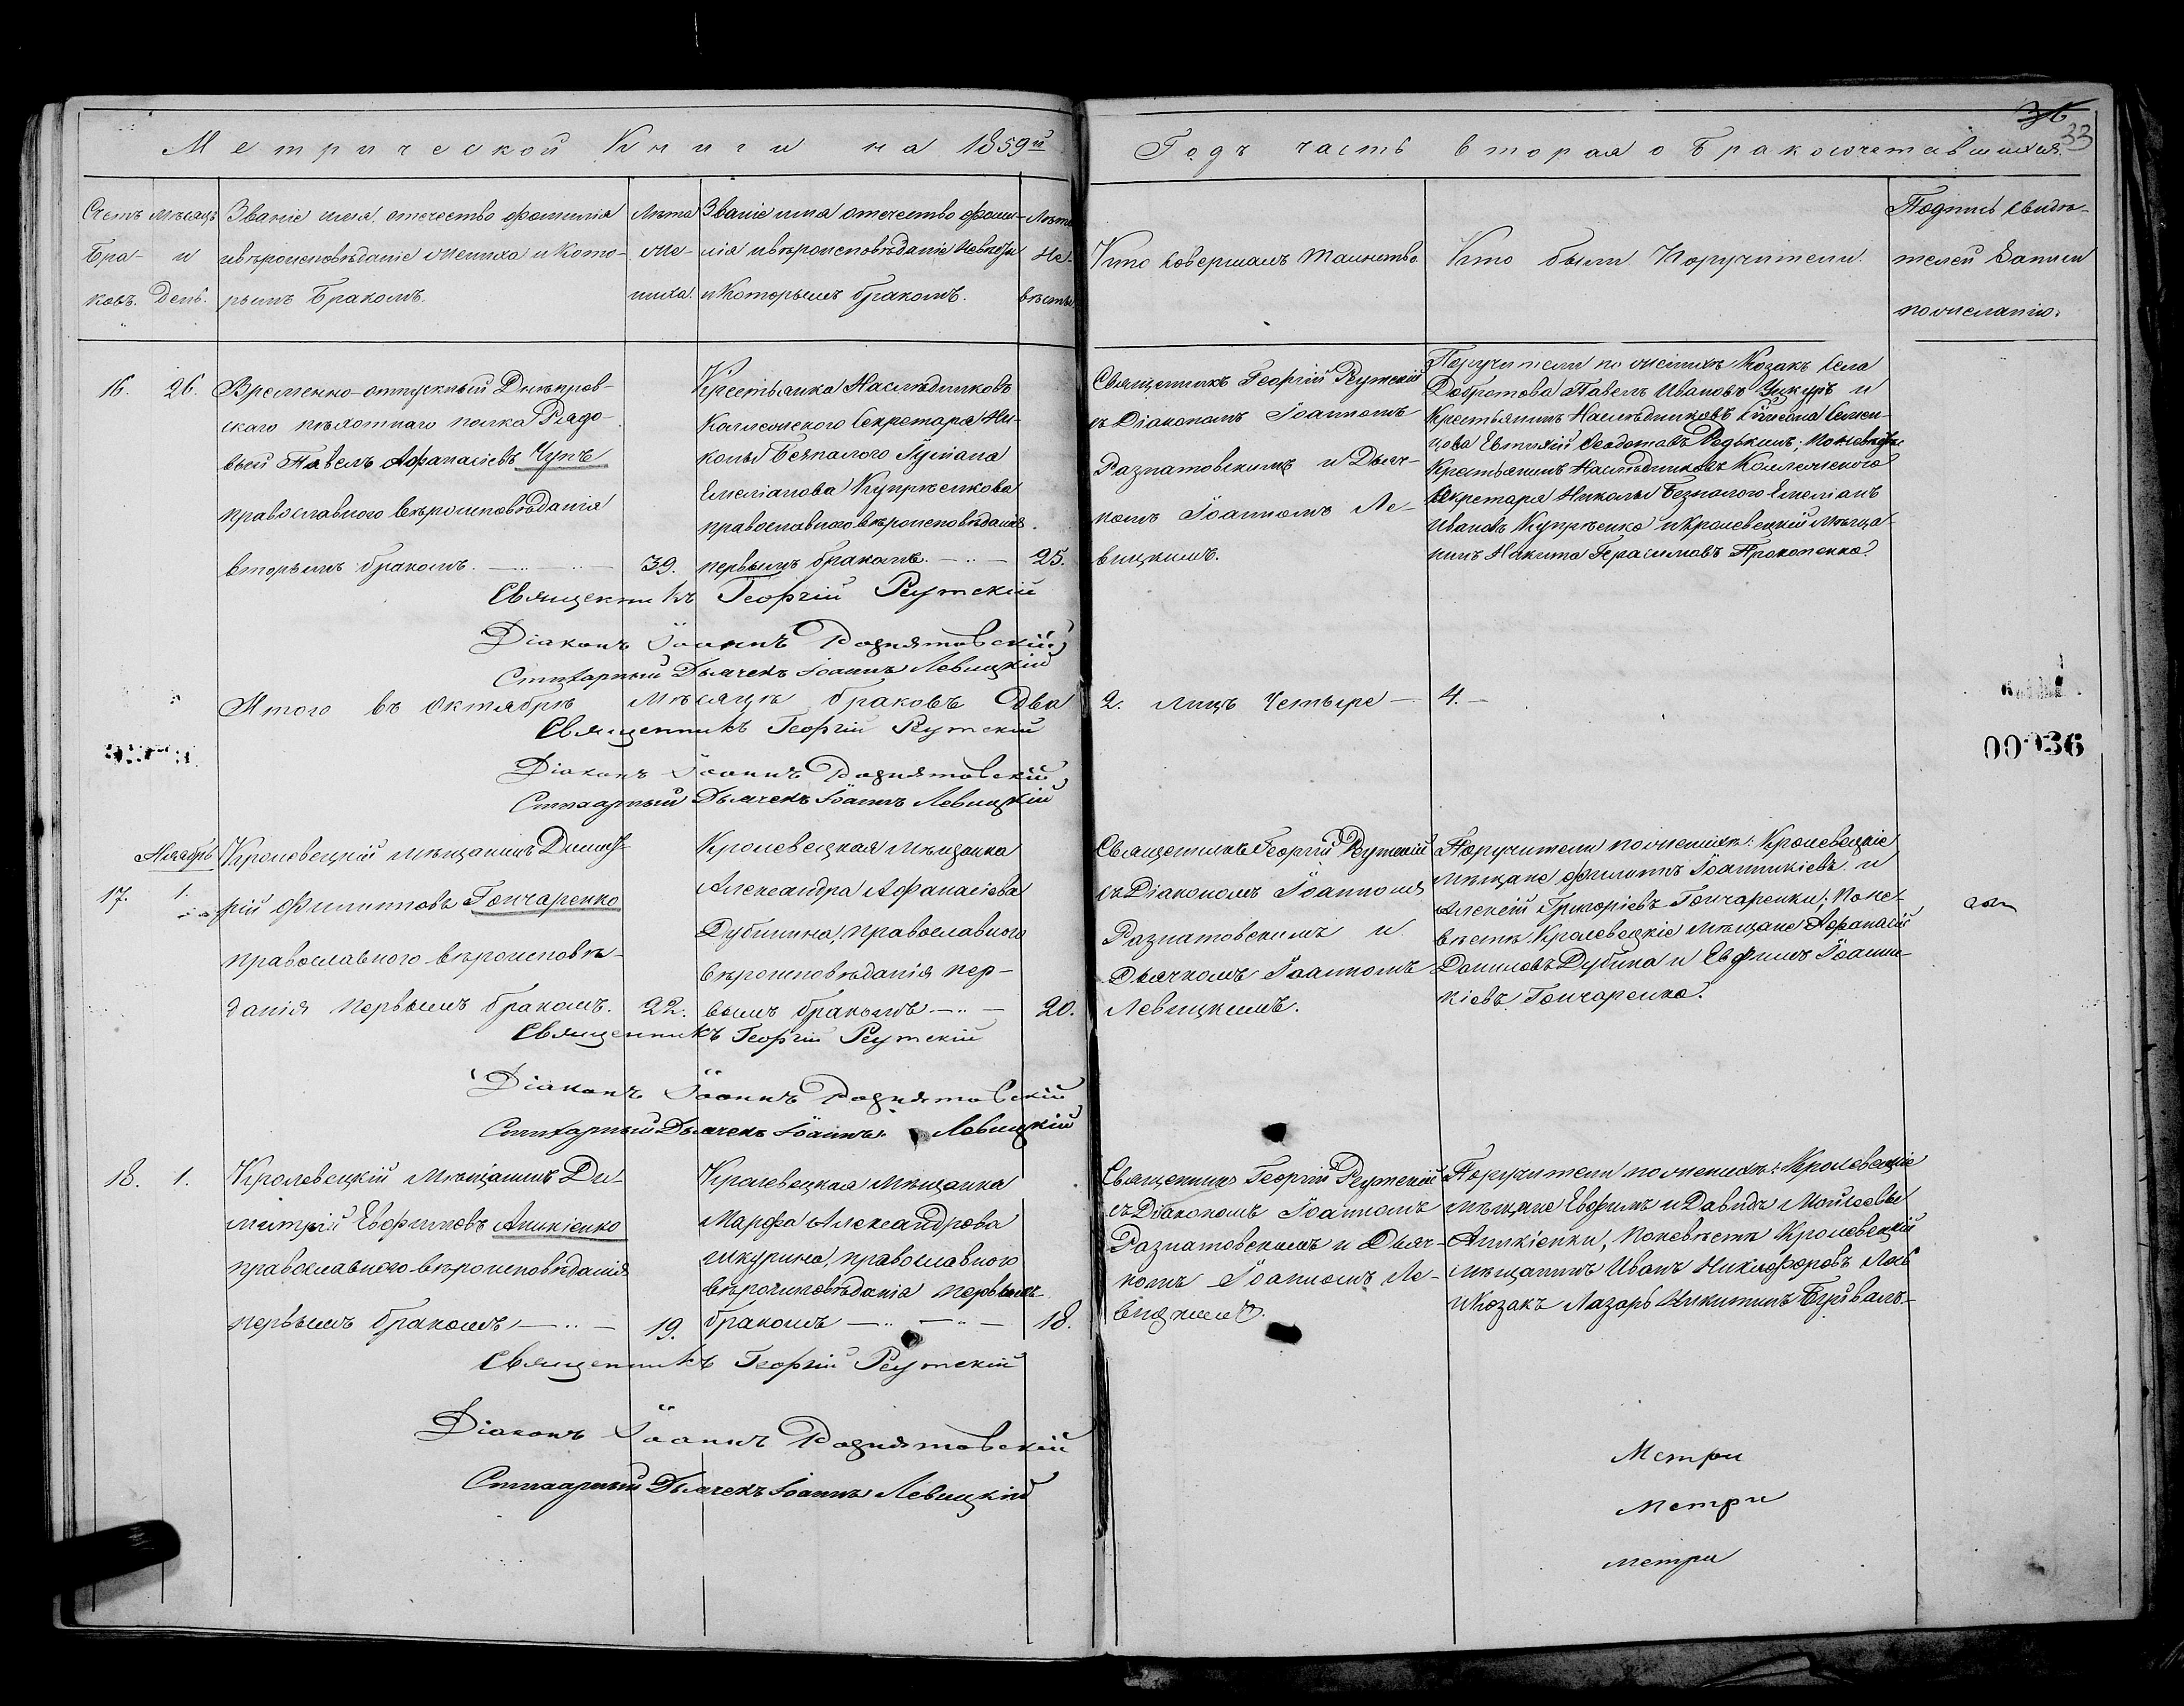 Метрической Книги на 1859й
Годъ часть вторая о Бракосочетавшихся.
36
33
Счетъ Бра-ковъ.
Мѣсяцъ и День.
Званіе имя, отечество фамилія
и вѣроисповѣданіе жениха и кото-
рымъ Бракомъ.
Лѣта
же-
ниха.
Званіе имя отечество фами-
лія и вѣроисповѣданіе невѣсты
и которымъ бракомъ.
Лѣта
Не-
вѣсты
Кто совершалъ таинство
Кто были Поручители
Подпись свидѣ-
телей Записи
по желанію.
16. 26.
Временно-отпускный Днѣпров-
скаго пѣхотнаго полка Рядо-
вый Павелъ Афанасіевъ Чупъ
православнаго вѣроисповѣданія
вторымъ бракомъ.
39.
Крестьянка Наслѣдниковъ
Коллежского Секретаря Ни-
колы Безпалого Іуліана
Емеліанова Купрѣенкова
православного вѣроисповѣданія
первымъ бракомъ.
25.
Священникъ Георгій Реутскій
съ Діакономъ Іоанномъ
Разнатовскимъ и Дьяч-
комъ Іоанномъ Ле-
вицкимъ.
Поручители по женихѣ Козакъ села
Добротова Павелъ Ивановъ и
Крестьянинъ Наслѣдниковъ
Евтихій Ѳеодотовъ Редькинъ; по невѣстѣ
Крестьянинъ Наслѣдниковъ Коллежского
Секретаря Николы Безпалого Емеліанъ
Ивановъ Купрѣенко и Кролевецкій мѣща-
нинъ Никита Герасимовъ Прокопенко.
Священникъ Георгій Реутскій
Діаконъ Іоаннъ Разнятовскій
Стихарный Дьячекъ Іоаннъ Левицкій
Итого въ Октябрѣ мѣсяцѣ браковъ Два 2. Лицъ Четыре — 4. —
Священникъ Георгій Реутскій
Діаконъ Іоаннъ Разнятовскій
Стихарный Дьячекъ Іоаннъ Левицкій
00036
Ноябрь
17. 1.
Кролевецкій мѣщанинъ Димит-
рій Филипповъ Гончаренко
православного вѣроисповѣ-
данія первымъ бракомъ.
22.
Кролевецкая мѣщанка
Александра Афанасіева
Дубинина, православного
вѣроисповѣданія пер-
вымъ бракомъ
20.
Священникъ Георгій Реутскій
съ Діакономъ Іоанномъ
Разнатовскимъ и
Дьячкомъ Іоанномъ
Левицкимъ.
Поручители по женихѣ: Кролевецкіе
мѣщане Филиппъ Іоанникіевъ и
Алексій Григоріевъ Гончаренки; по не-
вѣстѣ Кролевецкіе мѣщане Афанасій
Даниловъ Дубина и Евфимъ Іоанни-
кіевъ Гончаренко.
Священникъ Георгій Реутскій
Діаконъ Іоаннъ Разнятовскій
Стихарный Дьячекъ Іоаннъ Левицкій
18. 1.
Кролевецкій Мѣщанинъ Ди-
митрій Евфимовъ Аникіенко
православного вѣроисповѣданія
первымъ бракомъ
19.
Кролевецкая мѣщанка
Марфа Александрова
православного
вѣроисповѣданія первымъ
бракомъ
18.
Священникъ Георгій Реутскій
съ Діакономъ Іоанномъ
Разнатовскимъ и Дьяч-
комъ Іоанномъ Ле-
вицкимъ.
Поручители по женихѣ: Кролевецкіе
мѣщане Евфимъ и Давидъ Моисеевы
Аникіенки, по невѣстѣ Кролевецкій
мѣщанинъ Иванъ Никифоровъ
и Козакъ Лазарь Никитинъ
Священникъ Георгій Реутскій
Діаконъ Іоаннъ Разнятовскій
Стихарный Дьячекъ Іоаннъ Левицкій
Метри
Метри
метри